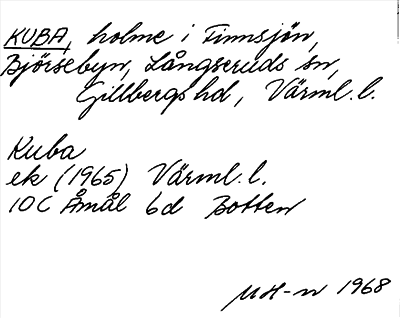 KUBA, holme i Finnsjön,
Björsebyn, Långseruds sn,
Gillbergs hd, Värml. l.
Kuba
ek (1965) Värml. l.
10C Åmål 6d Botten
MH-n 1968